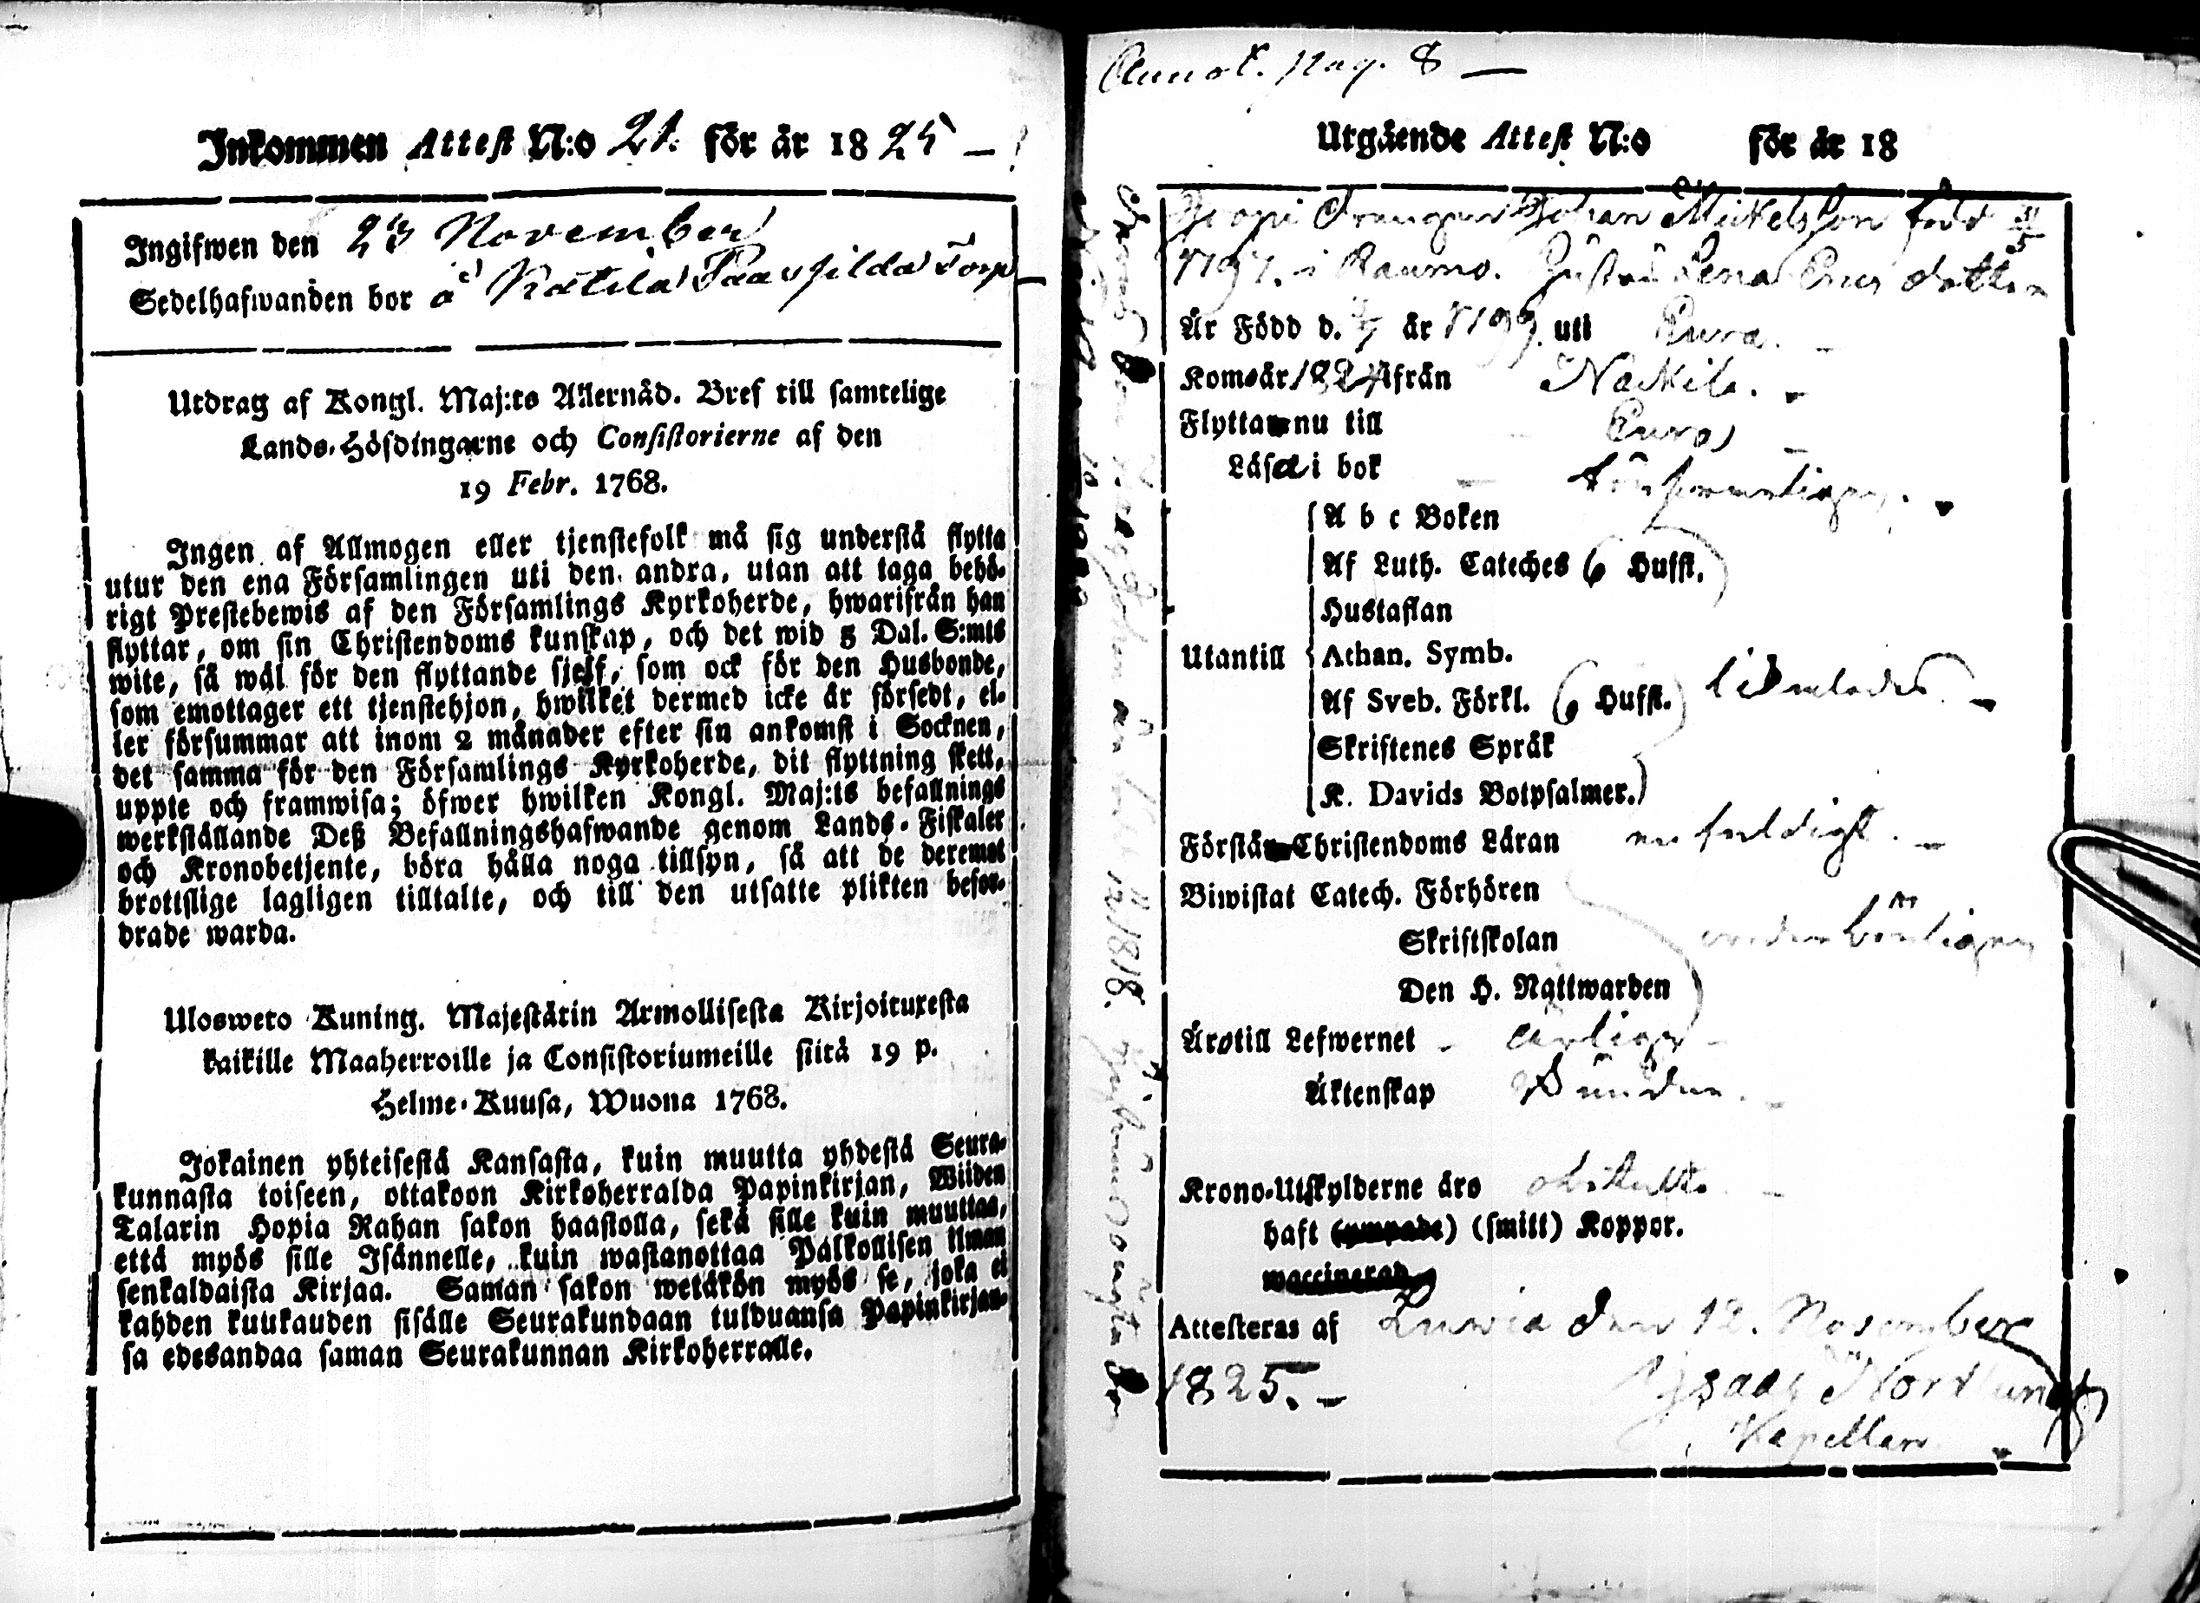 Inkommen Attest N:o 21. för år 1825 –
Ingifwen den 23 November
Sedelhafwanden bor å Kätilä Torp
Utdrag af Kongl. Maj:ts Allernåd. Bref till samtelige
Lands-Höfdingarne och Consistorierne af den
19 Febr. 1768.
Ingen af Allmogen eller tjenstefolk må sig understå flytta
utur den ena Församlingen uti den andra, utan att taga behö-
rigt Prestebewis af den Församlings Kyrkoherde, hwarifrån han
flyttar, om sin Christendoms kunskap, och det wid 5 Dal. S:mts
wite, så wäl för den flyttande sjelf, som ock för den Husbonde,
som emottager ett tjenstehjon, hwilket dermed icke är försedt, el-
ler försummar att inom 2 månader efter sin ankomst i Socknen,
det samma för den Församlings Kyrkoherde, dit flyttning skett,
uppte och framwisa; öfwer hwilken Kongl. Maj:ts befallnings
werkställande Deß Befallningshafwande genom Lands-Fiskaler
och Kronobetjente, böra hålla noga tillsyn, så att de deremot
brottslige lagligen tilltalte, och till den utsatte plikten befor-
drade warda.
Ulosweto Kuning. Majestätin Armollisesta Kirjoituxesta
kaikille Maaherroille ja Consistoriumeille siitä 19 p.
Helme-Kuusa, Wuona 1768.
Jokainen yhteisestä Kansasta, kuin muutta yhdestä Seura-
kunnasta toiseen, ottakoon Kirkoherralda Papinkirjan, Wiiden
Talarin Hopia Rahan sakon haastolla, sekä sille kuin muuttaa,
että myös sille Isännelle, kuin wastanottaa Palkollisen ilman
senkaldaista Kirjaa. Saman sakon wetäkön myös se, joka ei
kahden kuukauden sisälle Seurakundaan tulduansa Papinkirjan-
sa edesandaa saman Seurakunnan Kirkoherralle.
Annot. pag. 8 –
Utgående Attest N:o för år 18
Johan Mickelsson född 11/5
1797. i Raumo. Hustru Lena dotter
Är Född d. är 1799. uti Eura. –
Kom år 1824 ifrån Nackila. –
Flytta nu till Eura –
Läsa i bok
A b c Boken
Af Luth. Cateches 6 Hufst.
Hustaflan
Utantill Athan. Symb.
Af Sveb. Förkl. (6 Hufst.)
Skriftenes Språk
K. Davids Botpsalmer.
Förstå Christendoms Läran enfaldigt. –
Biwistat Catech. Förhören
Skriftskolan
Den H. Nattwarden
Äro till Lefwernet – ärlige –
Äktenskap
Krono-Utskylderne äro
haft (smitt) Koppor.
Attesteras af Luwia den 12. November
1825. – Nordlund
Kapellan